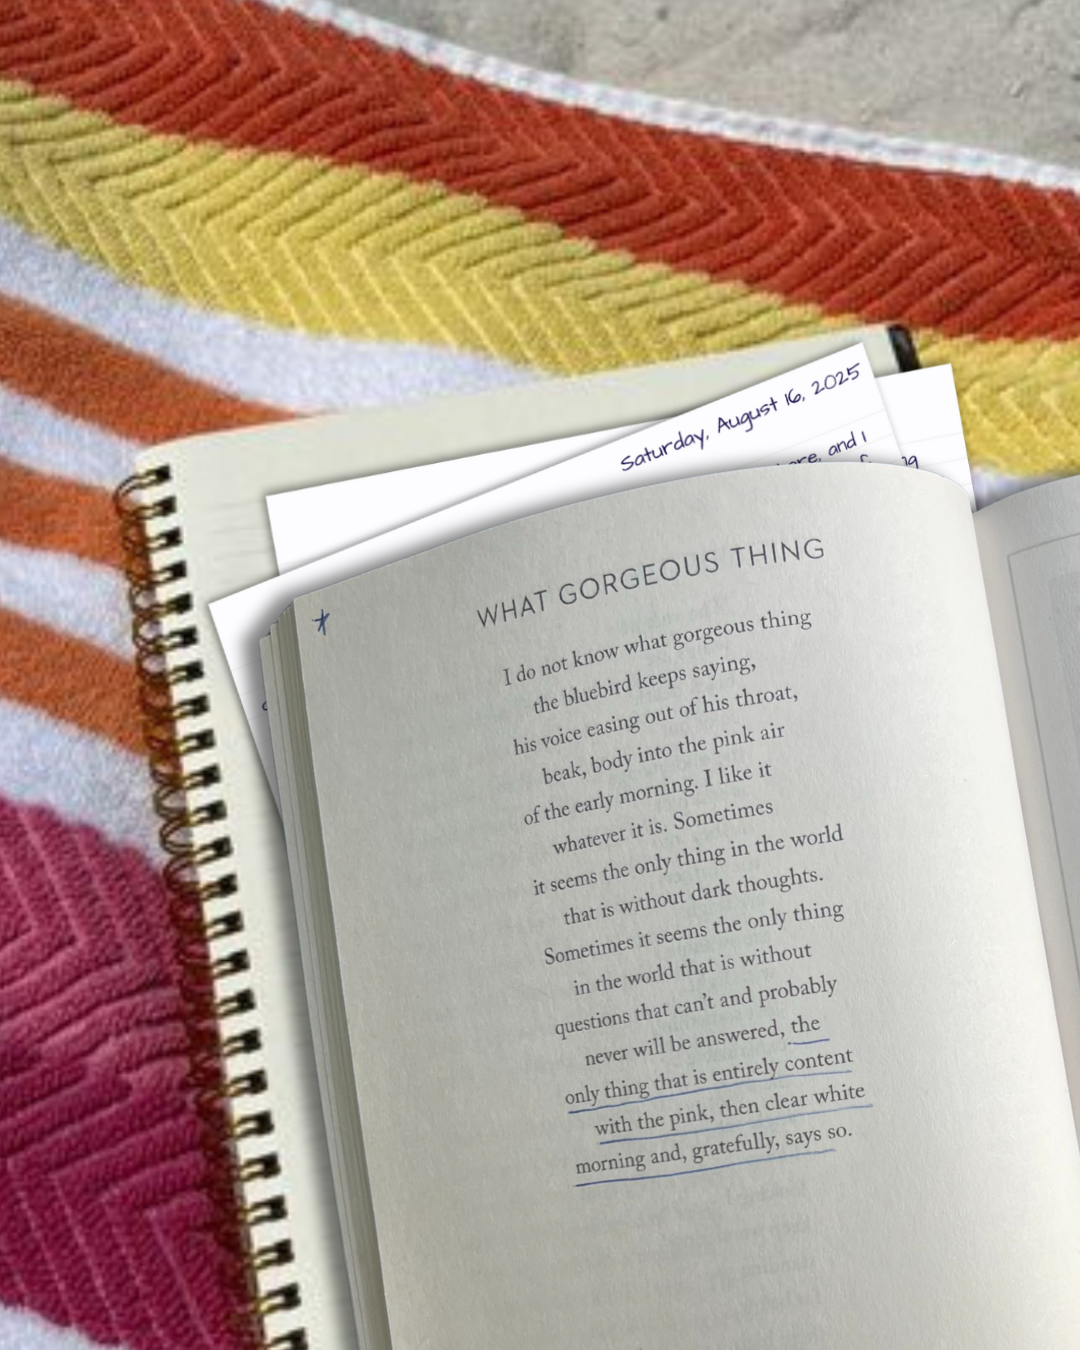 Saturday, August 16, 2025
and I
WHAT GORGEOUS THING
I do not know what gorgeous thing
the bluebird keeps saying,
his voice easing out of his throat,
beak, body into the pink air
of the early morning. I like it
whatever it is. Sometimes
it seems the only thing in the world
that is without dark thoughts.
Sometimes it seems the only thing
in the world that is without
questions that can’t and probably
never will be answered, the
only thing that is entirely content
with the pink, then clear white
morning and, gratefully, says so.